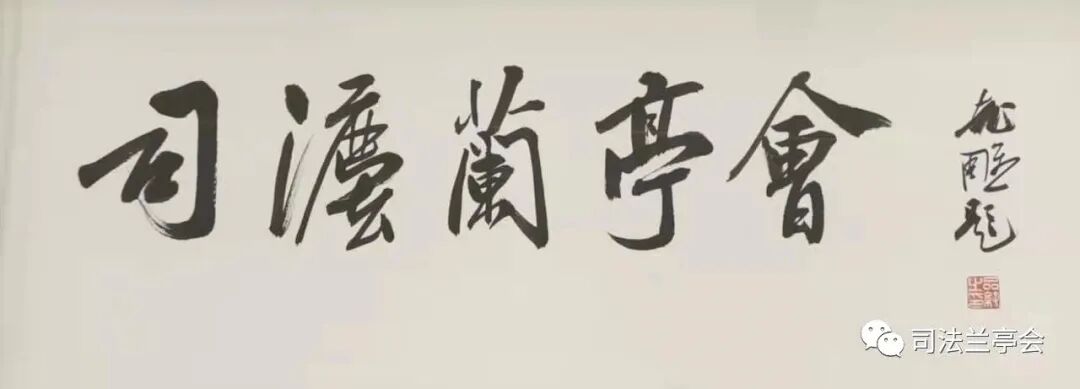 司灋蘭亭會
司法兰亭会